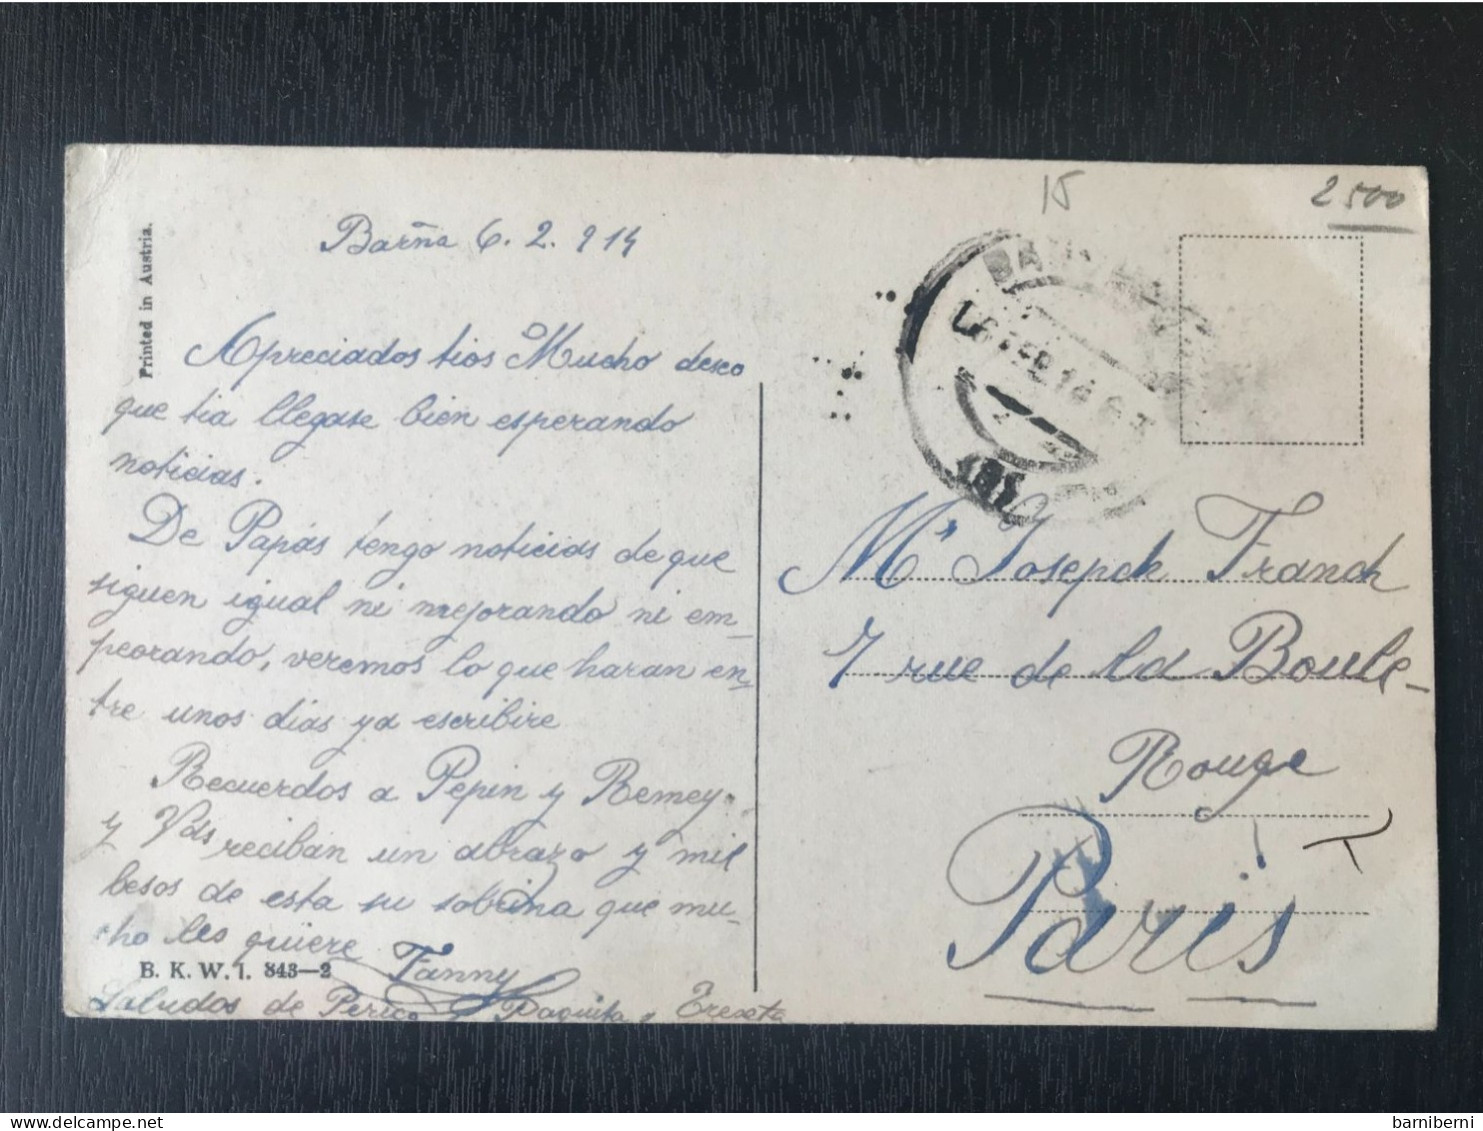 15
2500
Printed in Austria.
Barña 6.2.914
Apreciados tios Mucho deseo
que tia llegase bien esperando
noticias.
De Papás tengo noticias de que
siguen igual ni mejorando ni em-
peorando, veremos lo que haran en-
tre unos dias ya escribire
Recuerdos a Pepin y Remey
y Vds reciban un abrazo y mil
besos de esta su sobrina que mu-
cho les quiere Fanny
B. K. W. I. 843—2
Saludos de Perico Paquita y Tereseta
Mr Josepch Franch
7 rue de la Boule-
Rouge
Paris
barniberni